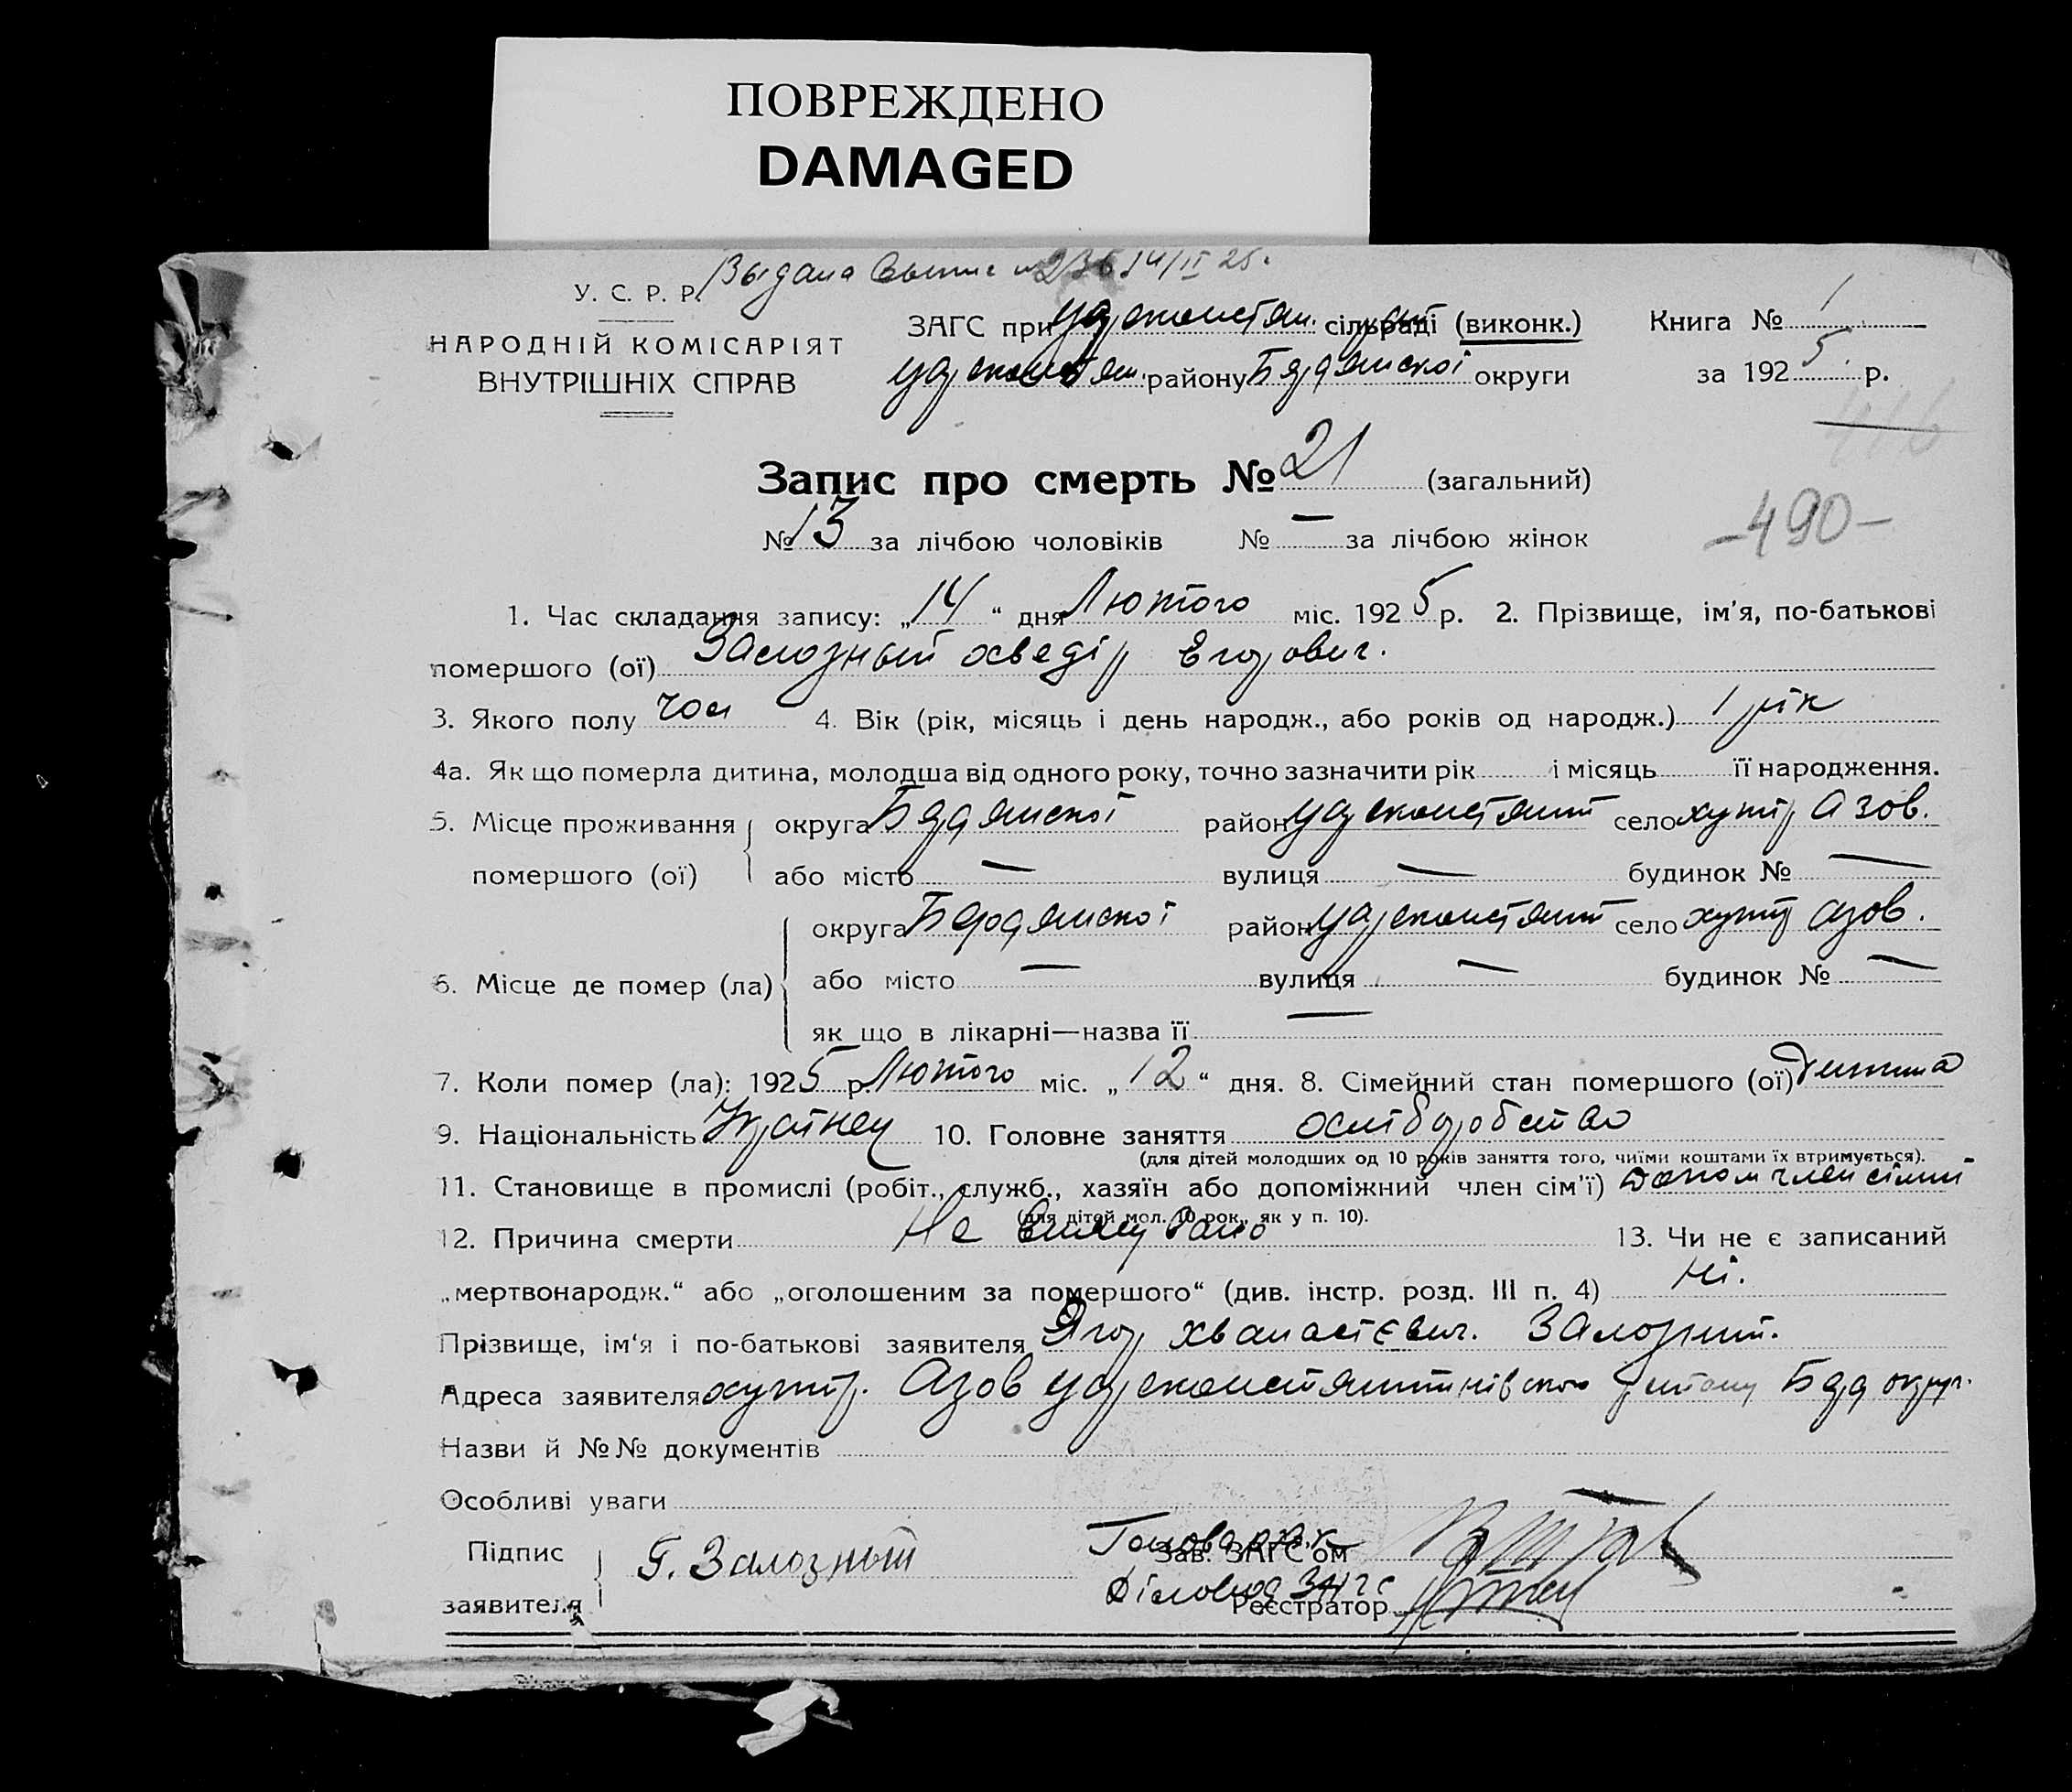 ПОВРЕЖДЕНО
DAMAGED
Выдана № 236 14/II 25.
У. С. Р. Р.
НАРОДНІЙ КОМІСАРІЯТ
ВНУТРІШНІХ СПРАВ
ЗАГС при царсконстян. сільраді (виконк.)
царсконстян. району Бердянскої округи
Книга № 1
за 1925 р.
416
Запис про смерть № 21 (загальний)
№ 13 за лічбою чоловіків № — за лічбою жінок
-490-
1. Час складання запису: „14“ дня Лютого міс. 1925 р. 2. Прізвище, ім'я, по-батькові
помершого (ої) Залозный Егорович.
3. Якого полу чол 4. Вік (рік, місяць і день народж., або років од народж.) 1 рік
4а. Як що померла дитина, молодша від одного року, точно зазначити рік і місяць її народження.
5. Місце проживання округа Бердянскої район царсконстянт село хутір Азов.
помершого (ої) або місто — вулиця — будинок № —
округа Бердянскої район царсконстянт село хутір Азов.
6. Місце де помер (ла) або місто — вулиця — будинок № —
як що в лікарні—назва її —
7. Коли помер (ла): 1925 р. Лютого міс. „12“ дня. 8. Сімейний стан помершого (ої) дитина
9. Національність Украінец 10. Головне заняття хліборобство
(для дітей молодших од 10 років заняття того, чиїми коштами їх втримується).
11. Становище в промислі (робіт., служб., хазяїн або допоміжний член сім'ї) допом член сімї
(для дітей мол. 10 рок., як у п. 10).
12. Причина смерти Не 13. Чи не є записаний
„мертвонародж.“ або „оголошеним за помершого“ (див. інстр. розд. III п. 4) ні.
Прізвище, ім'я і по-батькові заявителя Ягор Залозний.
Адреса заявителя хутір. Азов царсконстянтинівского району Берд округ.
Назви й №№ документів
Особливі уваги
Підпис
заявителя Г. Залозный
Голова
Зав. ЗАГС'ом
Діловод ЗАГС
Реєстратор